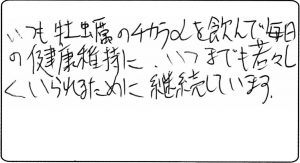 いつも牡蠣のチカラαを飲んで毎日
の健康維持に、いつまでも若々し
くいられるために継続しています。